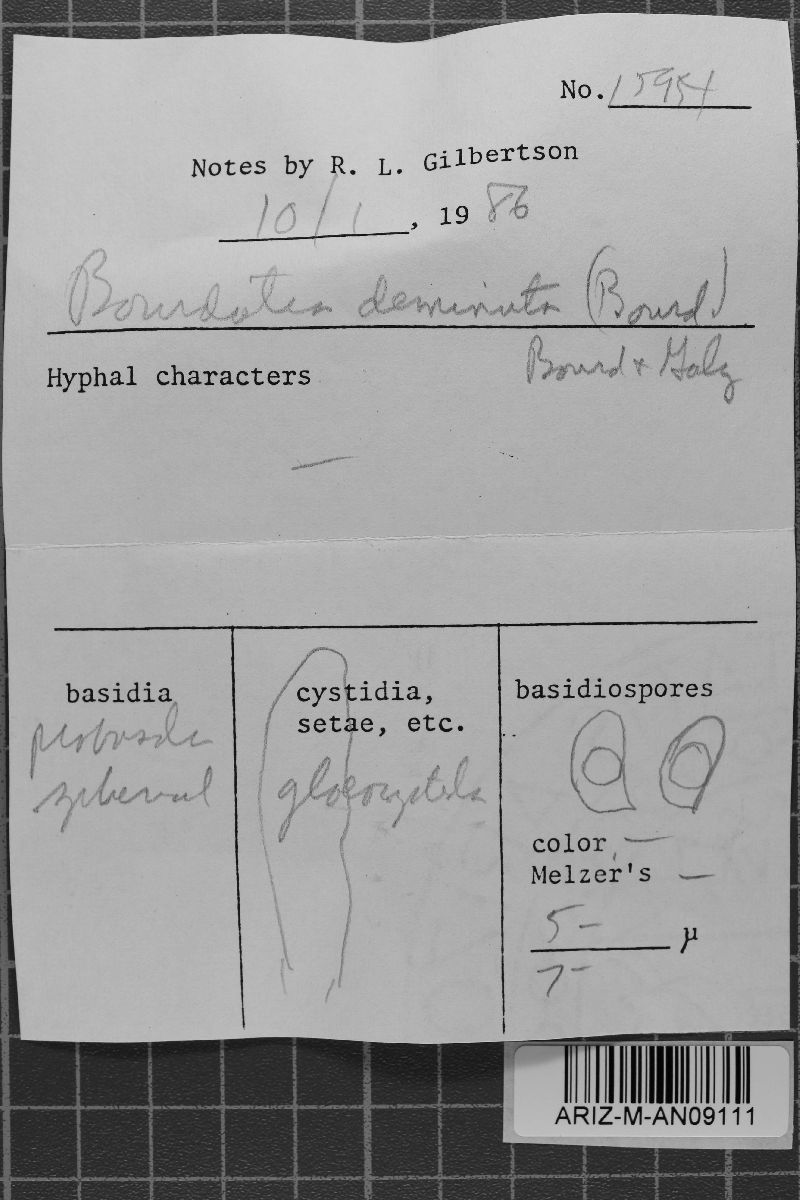 No. 15954
Notes by R. L. Gilbertson
10/1, 1986
Bourdotia deminuta (Bourd)
Bourd + Galz
Hyphal characters
—
basidia
spherical
cystidia,
setae, etc.
gloeocystidia
basidiospores
color —
Melzer's —
5 - μ
7 -
ARIZ-M-AN09111